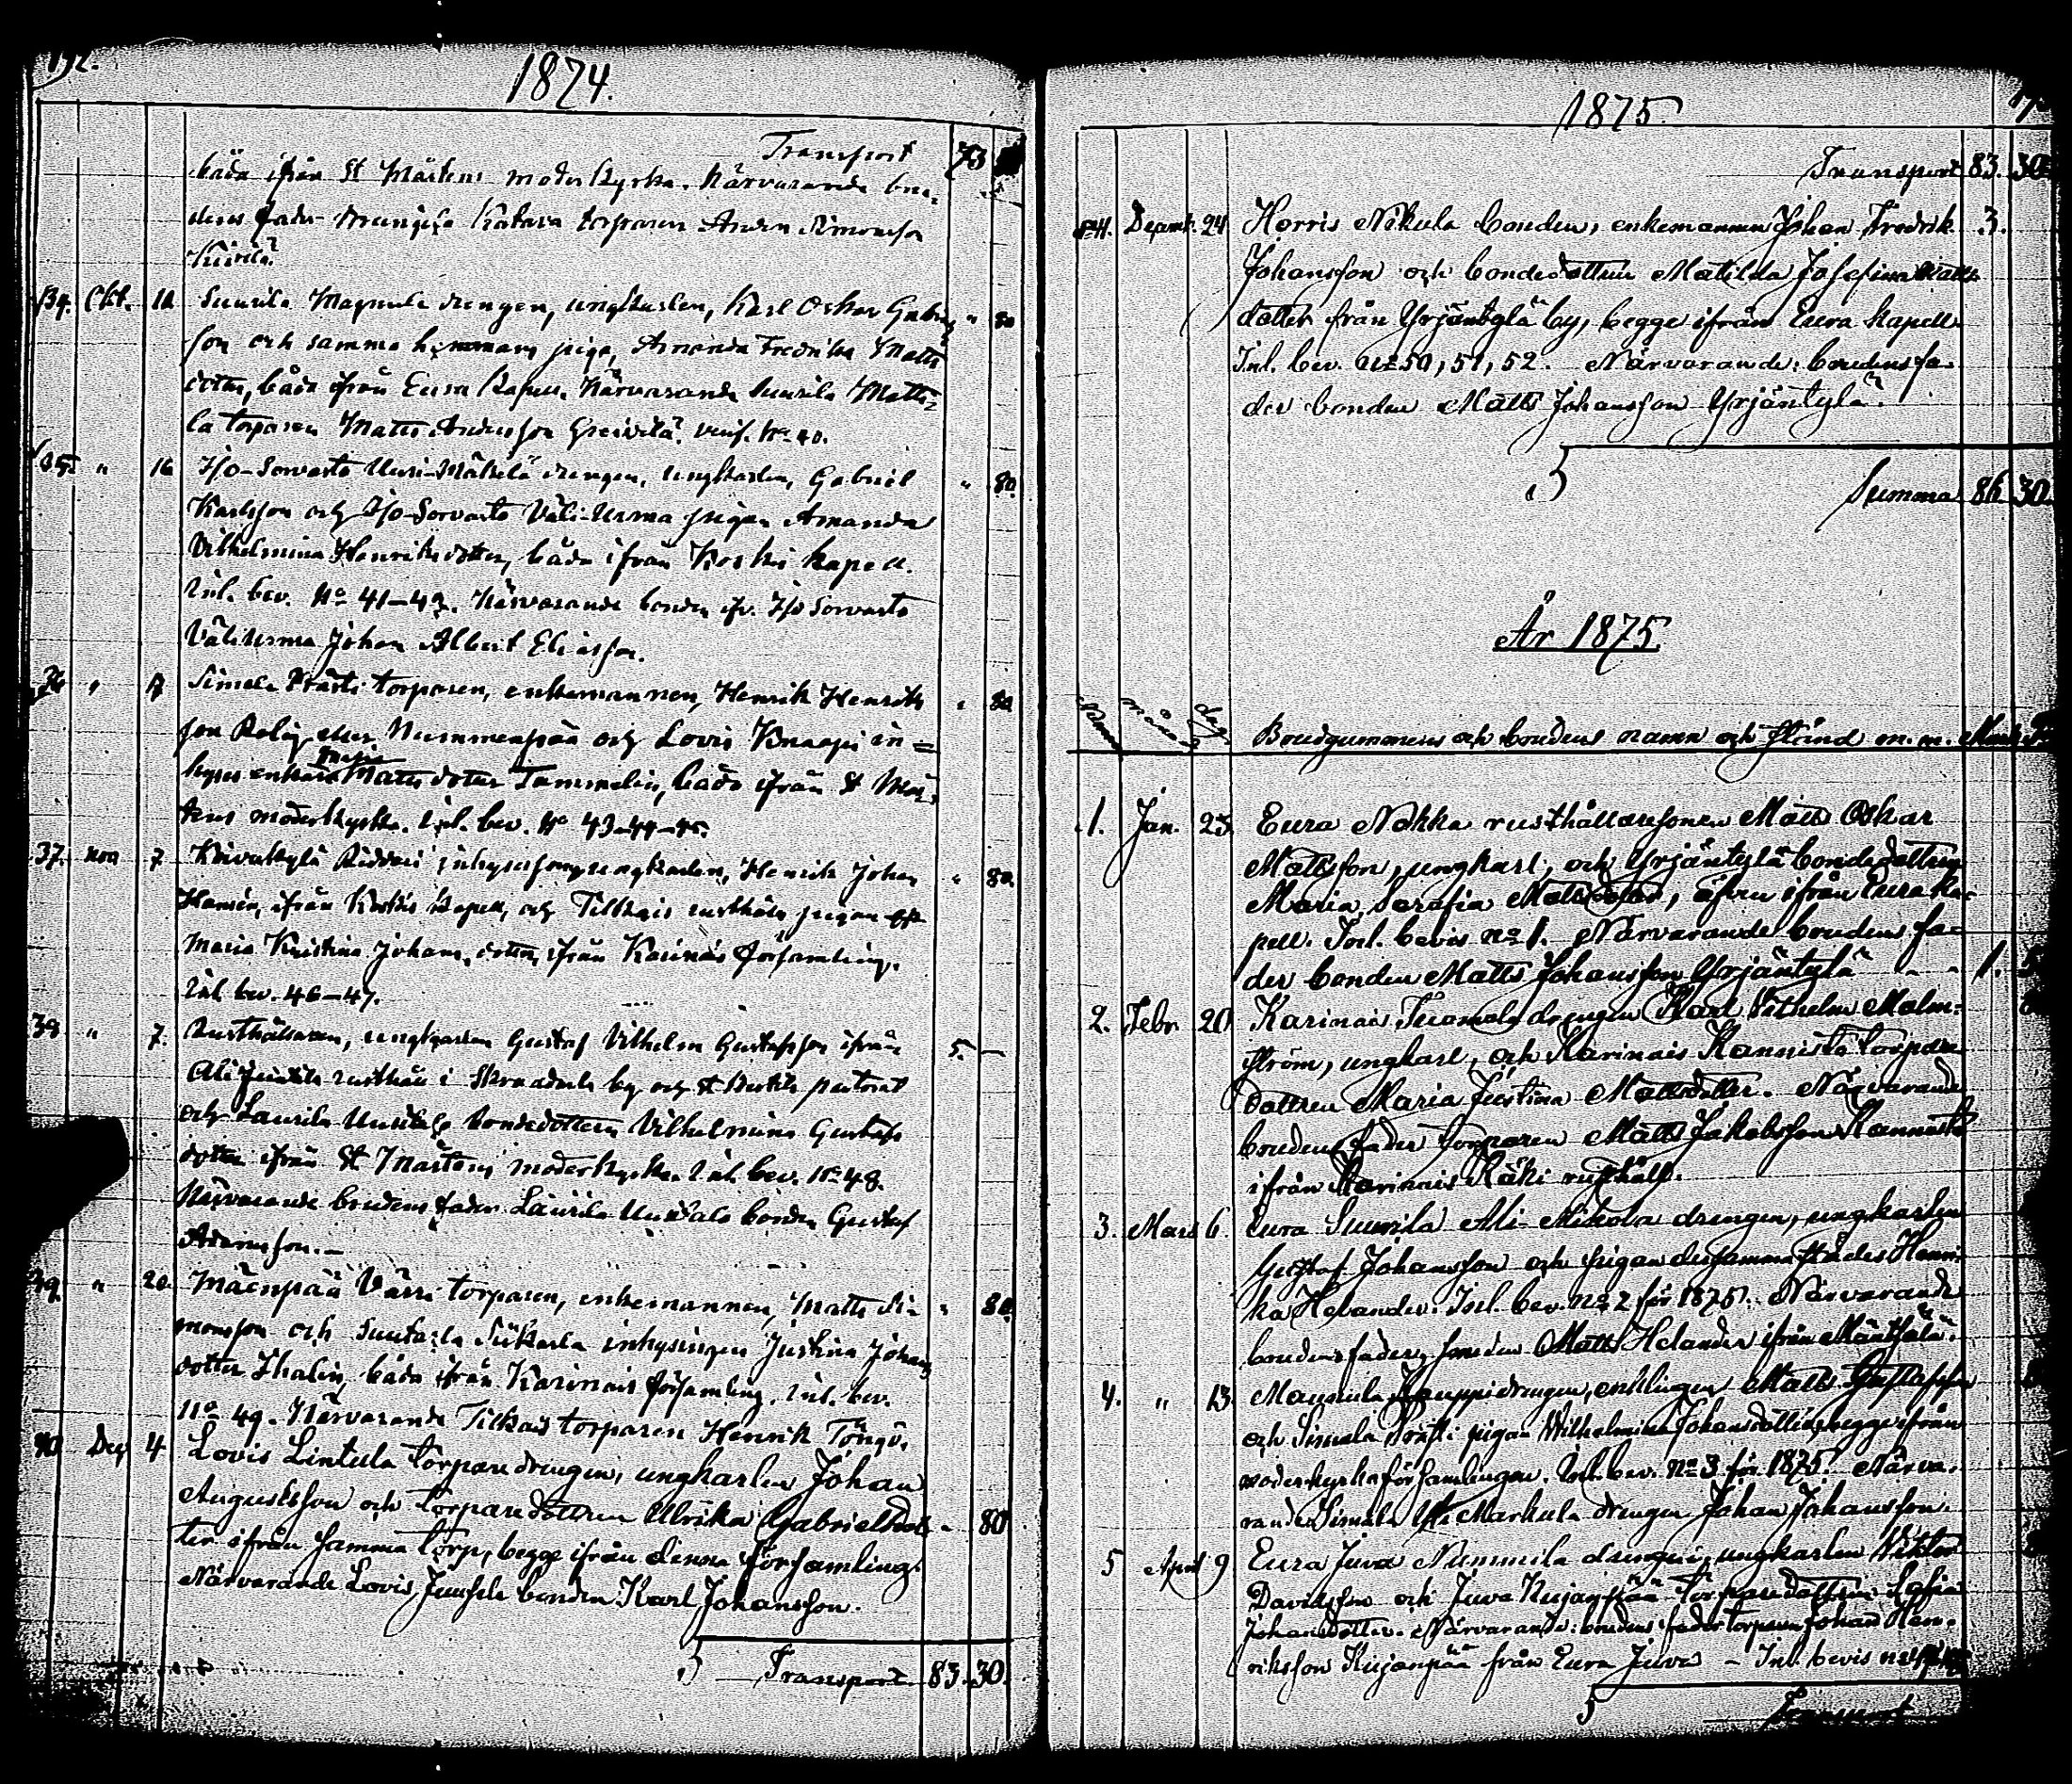 1874.
Transport 73
båda ifrån St Mårtens moderkyrka. Närvarande bru-
dens fader torparen Simonsson
34. Okt. 10 Suurila Magnula drengen, ungkarlen, Karl Oskar Gabriels " 80
son och samma hemmans piga, Amanda Fredrika Matts
dotter, båda ifrån Eura kapell. Närvarande Suurila Matti-
la torparen Matts Andersson verif. No 40.
35. " 16 Iso-Sorvasto Uusi-Mäkelä drengen, ungkarlen, Gabriel " 80.
Karlsson och Iso-Sorvasto Väli-Urma pigan Amanda
Vilhelmina Henriksdotter, båda ifrån Koskis kapell.
Inl. bev. No 41–42. Närvarande bonden ifr. Iso Sorvasto
Väliurma Johan Albert Eliasson.
36 " 17 Simala Prästi torparen, enkemannen, Henrik Henriks " 80
son eller Nummenpää och Lovis Knaapi in-
hyses enkan Maja Matts dotter Tammelin, båda ifrån St Mår-
tens moderkyrka. Inl. bev. No 43–44–45.
37. nov 7 inhysesson ungkarlen, Henrik Johan " 80.
Hansén, ifrån Koskis kapell, och Tilkais rusthålls pigan
Maria Kristina Johansdotter, ifrån Karinais församling.
Inl. bev. 46–47.
38 " 7. Rusthållaren, ungkarlen Gustaf Vilhelm Gustafsson ifrån 5. —
rusthåll i by och pastorat
och Laurila Uusitalo bondedottern Vilhelmina Gustafs
dotter ifrån St Mårtens moderkyrka. Inl. bev. No 48.
Närvarande brudens fader Laurila Uusitalo bonden Gustaf
Adamsson.—
39. " 20. Mäenpää Värri torparen, enkemannen, Matts Si- " 80.
monsson och inhysingen Justina Johans
dotter Thalin, båda ifrån Karinais församling. Inl. bev.
No 49. Närvarande Tilkais torparen Henrik
40 Dec 4 Lovis Lintula torpare drengen, ungkarlen Johan
Augustsson och torpare dottren Ulrika Gabrielsdot- " 80
ter ifrån samma torp, begge ifrån denna församling.
Närvarande Lovis Juusela bonden Karl Johansson.
Transport 83. 30.
1875.
Transport 83. 30
No 41. Decemb. 24 Horris Nikula bonden, enkemannen Johan Fredrik 3.
Johansson och bondedottren Matilda Josefina Matts
dotter från Yrjäntylä by, begge ifrån Eura kapell
Inl. bev. No 50, 51, 52. Närvarande: brudens fa-
der bonden Matts Johansson Yrjäntylä.
Summa 86 30.
År 1875.
månad dag Brudgummens och brudens namn och stånd m. m. Mark
1. Jan. 23 Eura Nokka rusthållaresonen Matts Oskar
Mattsson, ungkarl, och Yrjäntylä bondedottren
Maria Serafia Mattsdotter, äfven ifrån Eura ka-
pell. Inl. bevis no 1. Närvarande brudens fa-
der bonden Matts Johansson Yrjäntylä " " 1.
2. Febr. 20 Karinais Tuomola drengen Karl Vilhelm Malm-
ström, ungkarl, och Karinais Kannisto torpare
dottren Maria Justina Mattsdotter. Närvarande
brudens fader torparen Matts Jakobsson Kannisto
ifrån Karinais Käki rusthåll.
3. Mars 6. Eura Suurila Ali-Mikola drengen, ungkarlen
Gustaf Johansson och pigan dersammastädes Henri-
ka Helander. Inl. bev. No 2 för 1875. Närvarande
brudens fader, smeden Matts Helander ifrån Mäntsälä.
4. " 13. Maunula Kauppi drengen, enklingen Matts Gustafsson
och Simala Prästi pigan Wilhelmina Johansdotter, begge ifrån
moderkyrkoförsamlingen. Inl. bev. No 3 för 1875. Närva-
rande Simala Yli Markula drengen Johan Johansson.
5 April 9 Eura Juva Nummila drengen, ungkarlen Viktor
Davidsson och Juva Kujanpää torparedottren Sofia
Johansdotter. Närvarande: brudens fader torparen Johan Hen-
riksson Kujanpää från Eura Juva – Inl. bevis
Transport